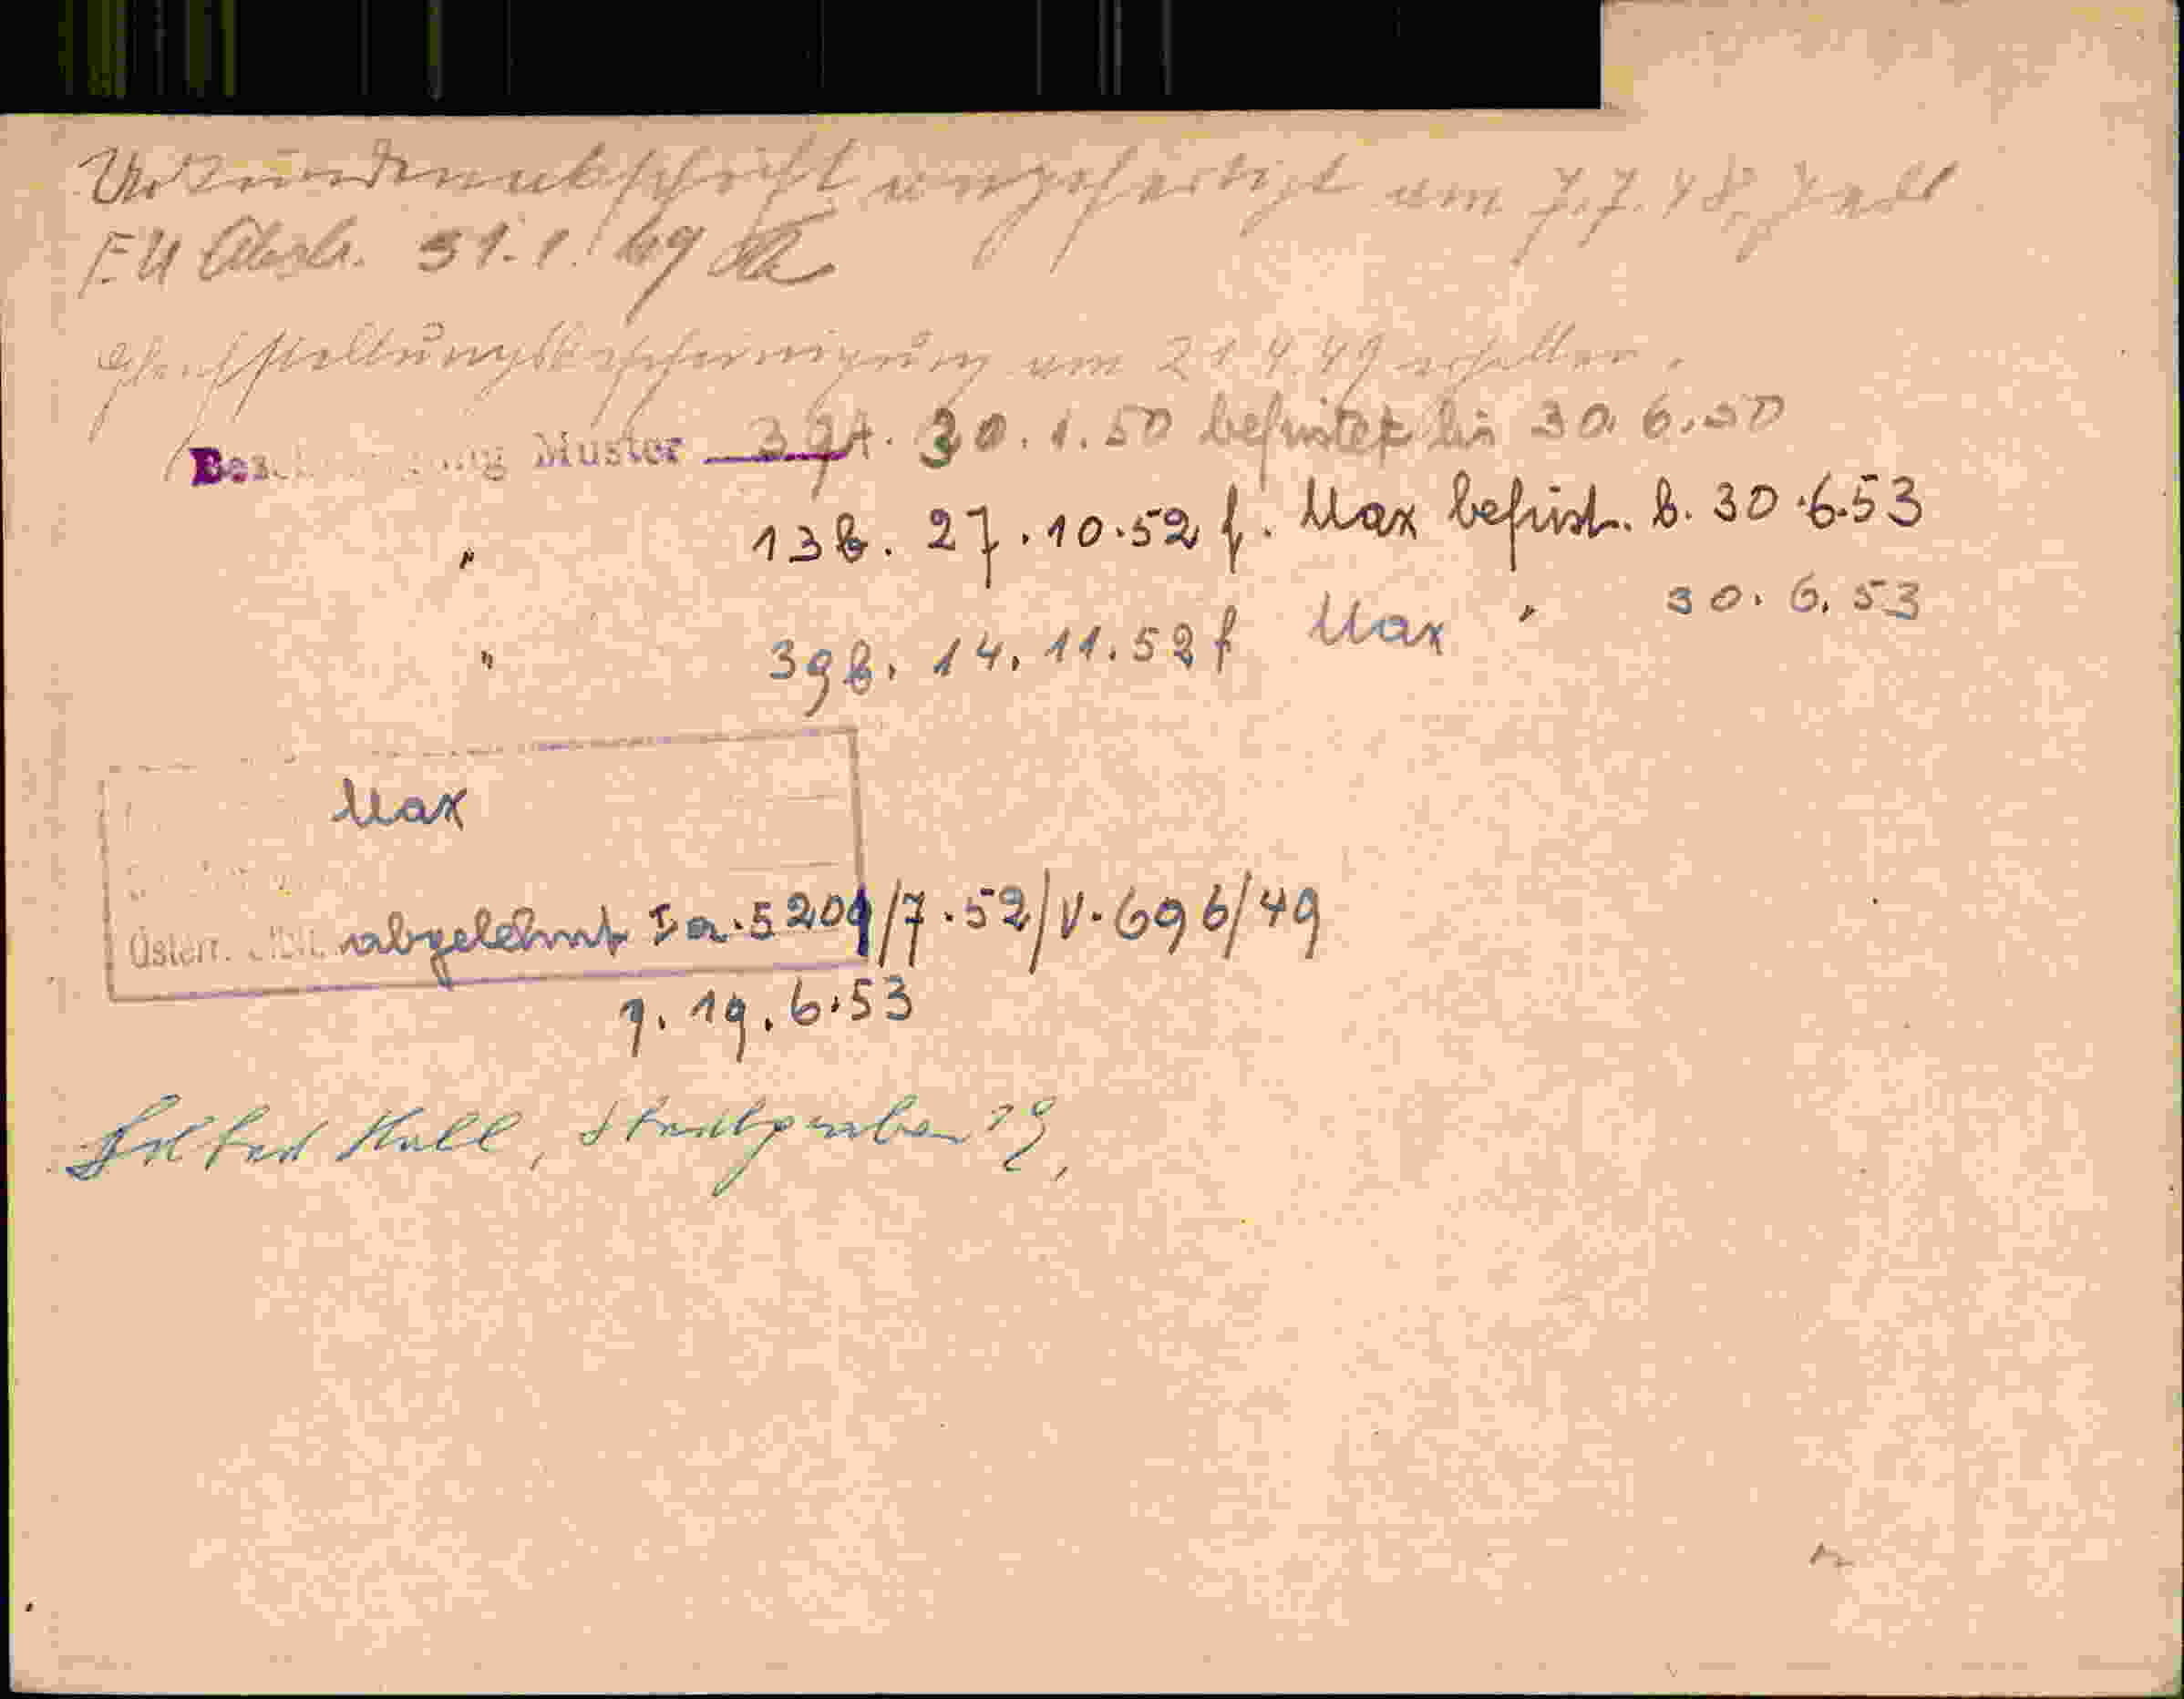 Urkundenabschrift ausgefertigt am 7.7.48,
EU Abschr. 31.1.49
am 21.4.49 erhalten.
Muster 39A. 30.1.50 befristet bis 30.6.50
" 13b. 27.10.52 f. Max befrist. b. 30.6.53
" 39b. 14.11.52 f Max " 30.6.53
Max
Österr. abgelehnt Ia.5209/7.52/V.696/49
9.19.6.53
Hall, Stadtgraben 19,